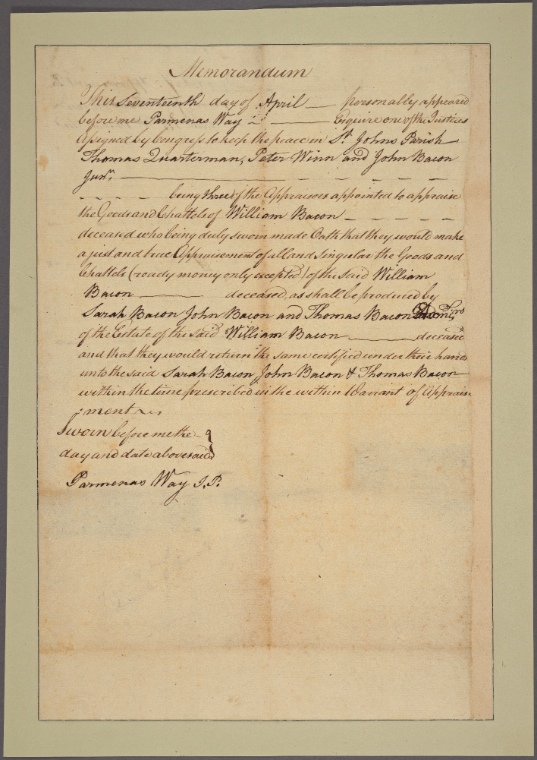 Memorandum
This Seventeenth day of April — personally appeared
before me Parmenas Way — Esquire one of the Justices
assigned by Congress to keep the peace in St. Johns Parish
Thomas Quarterman, Peter Winn and John Bacon
Junr. — — — — — —
— — — — being three of the Appraisers appointed to appraise
the Goods and Chattels of William Bacon — — — — —
deceased who being duly sworn made Oath that they would make
a just and true Appraisement of all and Singular the Goods and
Chattels (ready money only excepted) of the said William
Bacon — deceased, as shall be produced by
Sarah Bacon John Bacon and Thomas Bacon
of the Estate of the said William Bacon — deceased
and that they would return the same certified under their hands
unto the said Sarah Bacon John Bacon & Thomas Bacon
within the time prescribed in the within Warrant of Apprais
=ment
Sworn before me the
day and date abovesaid
Parmenas Way J.P.